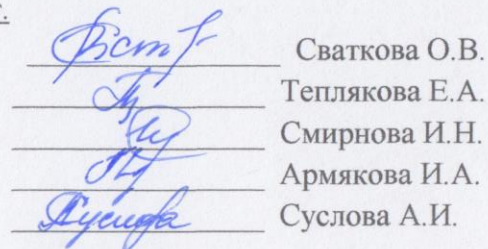 г.
Сваткова О.В.
Теплякова Е.А.
Смирнова И.Н.
Армякова И.А.
Суслова Суслова А.И.